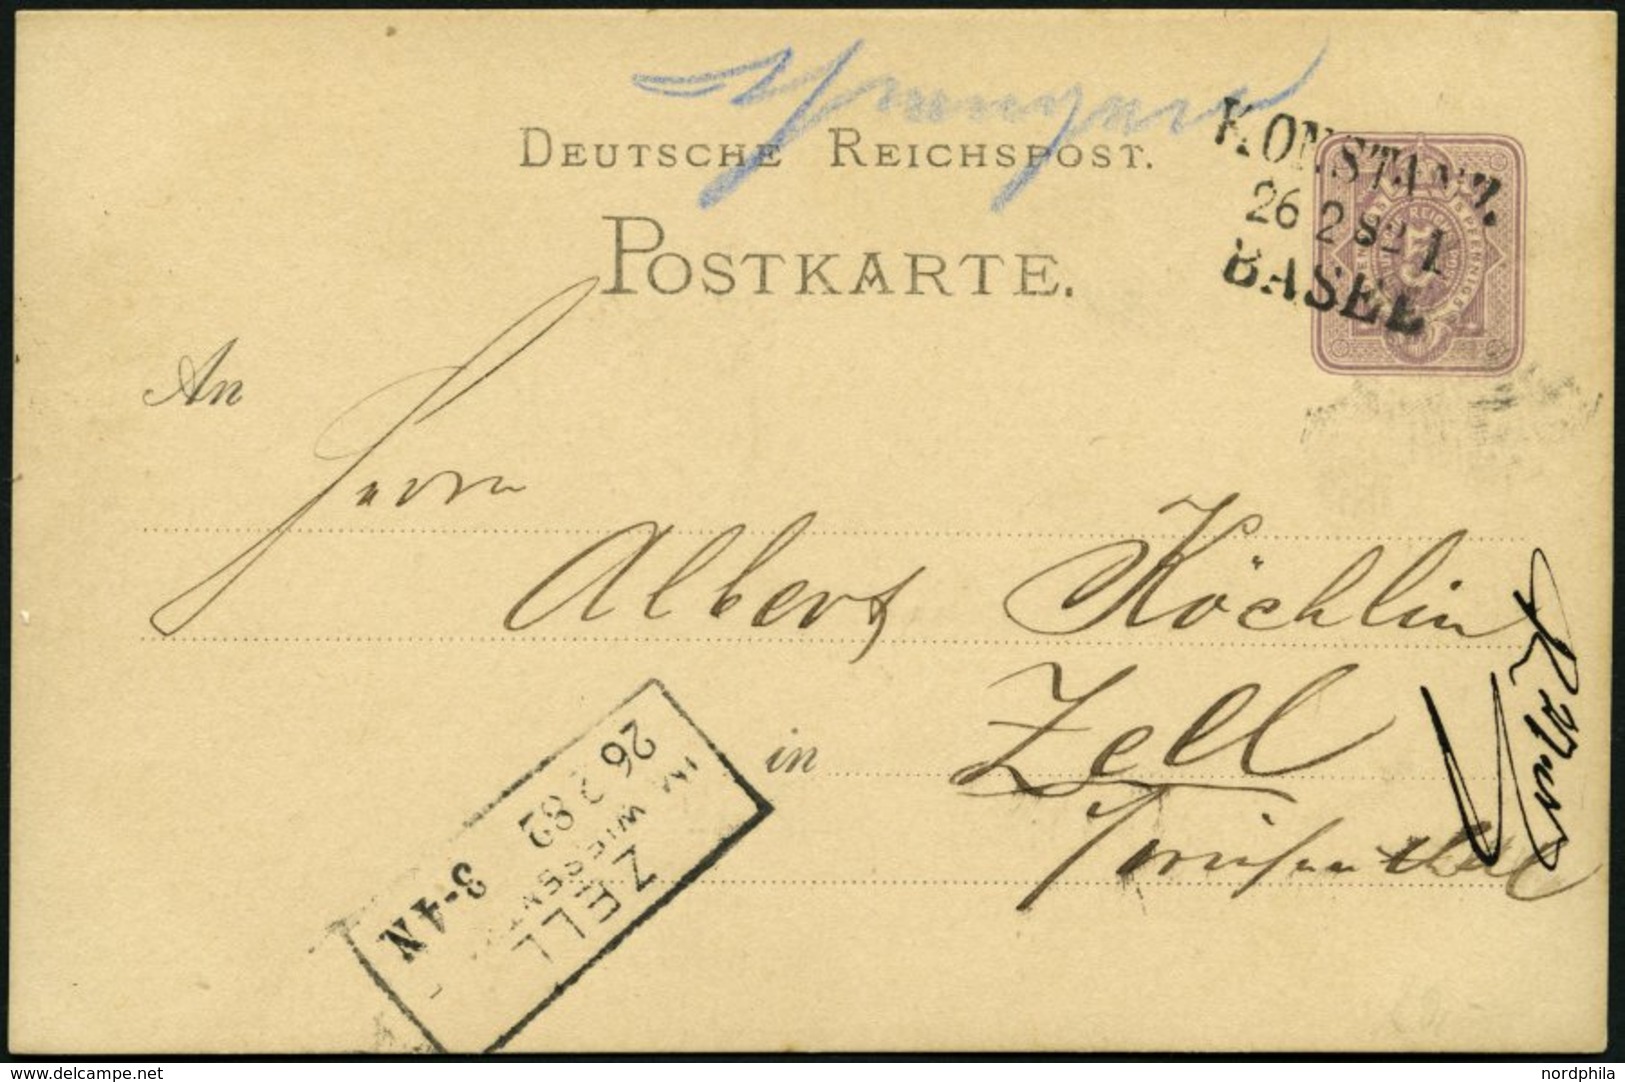 DEUTSCHE REICHSPOST.
POSTKARTE.
KONSTANZ.
26 2 82 1
BASEL
An
Herrn
Albert Köchlin
in Zell
Wiesenthal
ZELL
IM WIESENT
26 2 82
3-4N
www.delcampe.net
nordphila